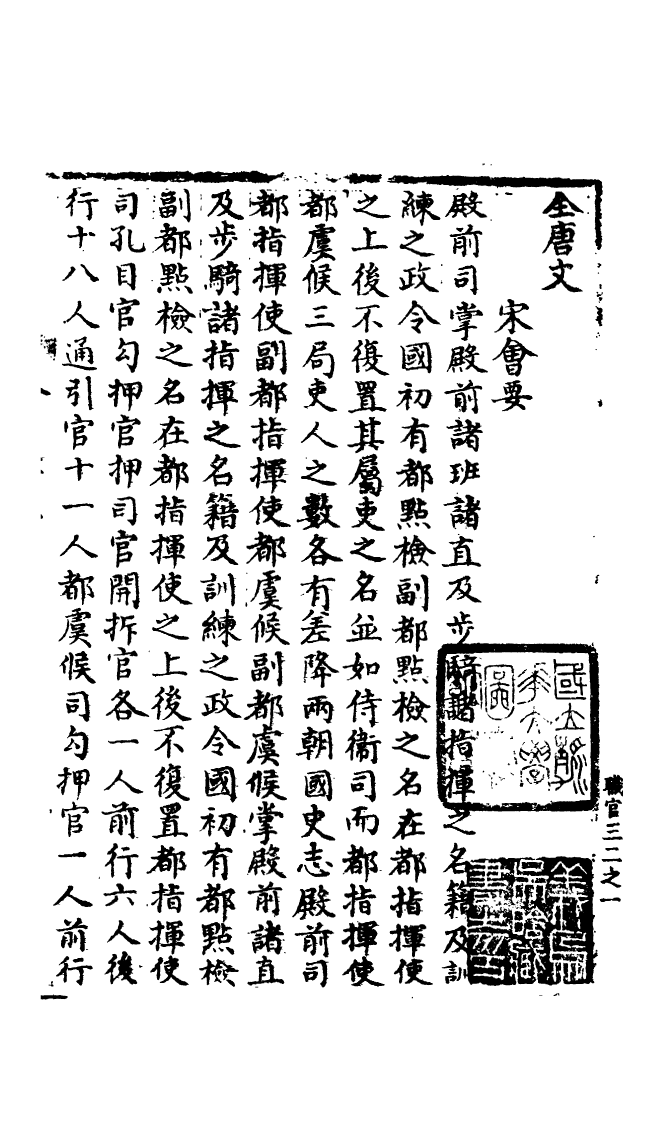 全唐文
宋會要
殿前司掌殿前諸班諸直及步騎諸指揮之名籍及訓
練之政令國初有都點檢副都點檢之名在都指揮使
之上後不復置其屬吏之名並如侍衞司而都指揮使
都虞候三局吏人之數各有差降兩朝國史志殿前司
都指揮使副都指揮使都虞候副都虞候掌殿前諸直
及步騎諸指揮之名籍及訓練之政令國初有都點檢
副都點檢之名在都指揮使之上後不復置都指揮使
司孔目官勾押官押司官開拆官各一人前行六人後
行十八人通引官十一人都虞候司勾押官一人前行
職官三二之一